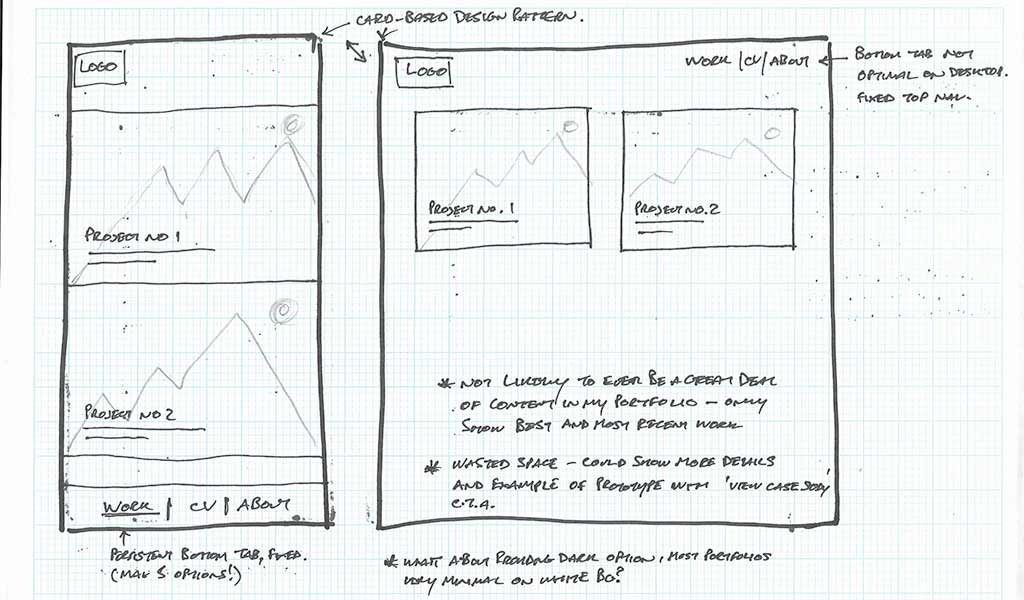 CARD-BASED DESIGN PATTERN.
LOGO
PROJECT NO 1
PROJECT NO 2
WORK | CV | ABOUT
PERSISTENT BOTTOM TAB, FIXED.
(MAX 5 OPTIONS!)
LOGO
WORK | CV | ABOUT
BOTTOM TAB NOT
OPTIMAL ON DESKTOP.
FIXED TOP NAV.
PROJECT NO. 1
PROJECT NO. 2
* NOT LIKELY TO EVER BE A GREAT DEAL
OF CONTENT IN MY PORTFOLIO - ONLY
SHOW BEST AND MOST RECENT WORK
* WASTED SPACE - COULD SHOW MORE DETAILS
AND EXAMPLE OF PROTOTYPE WITH 'VIEW CASE STUDY'
C.T.A.
* WHAT ABOUT PROVIDING DARK OPTION, MOST PORTFOLIOS
VERY MINIMAL ON WHITE BG?